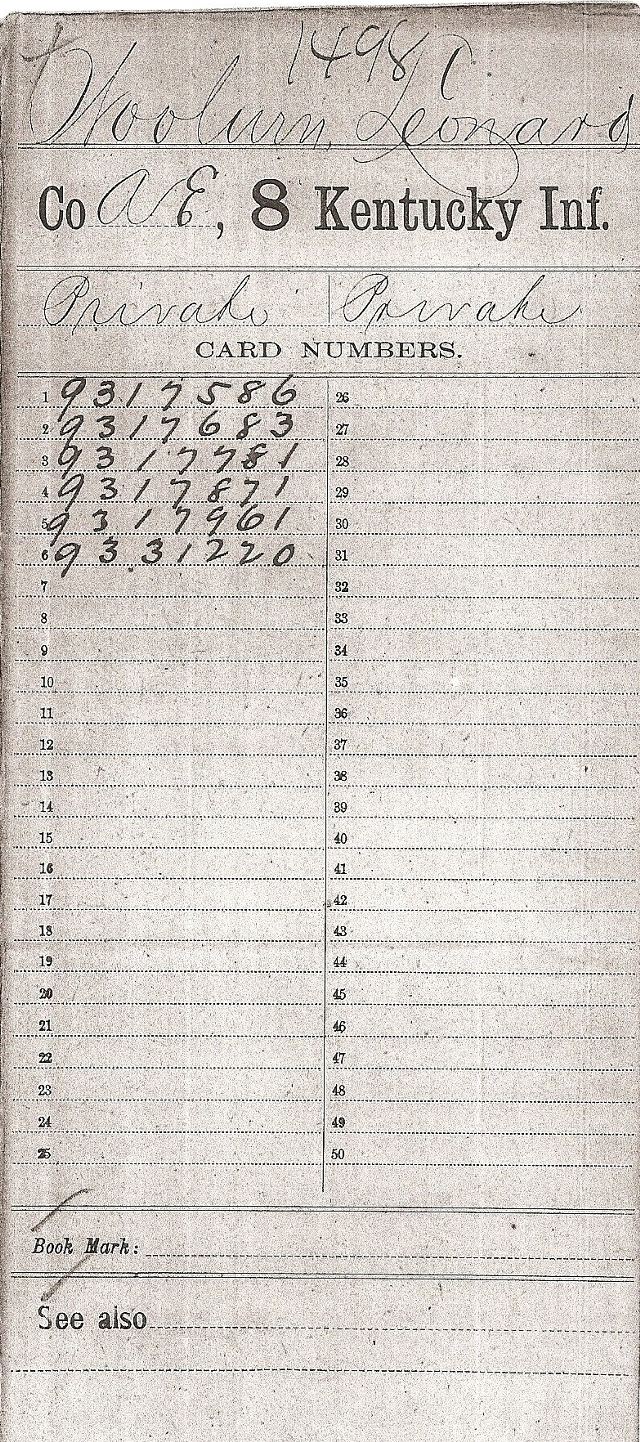 1498
Woolurn, Leonard
Co A E, 8 Kentucky Inf.
Private Private
CARD NUMBERS.
1 9317586 26
2 9317683 27
3 9317781 28
4 9317871 29
5 9317961 30
6 9331220 31
7 32
8 33
9 34
10 35
11 36
12 37
13 38
14 39
15 40
16 41
17 42
18 43
19 44
20 45
21 46
22 47
23 48
24 49
25 50
Book Mark:
See also